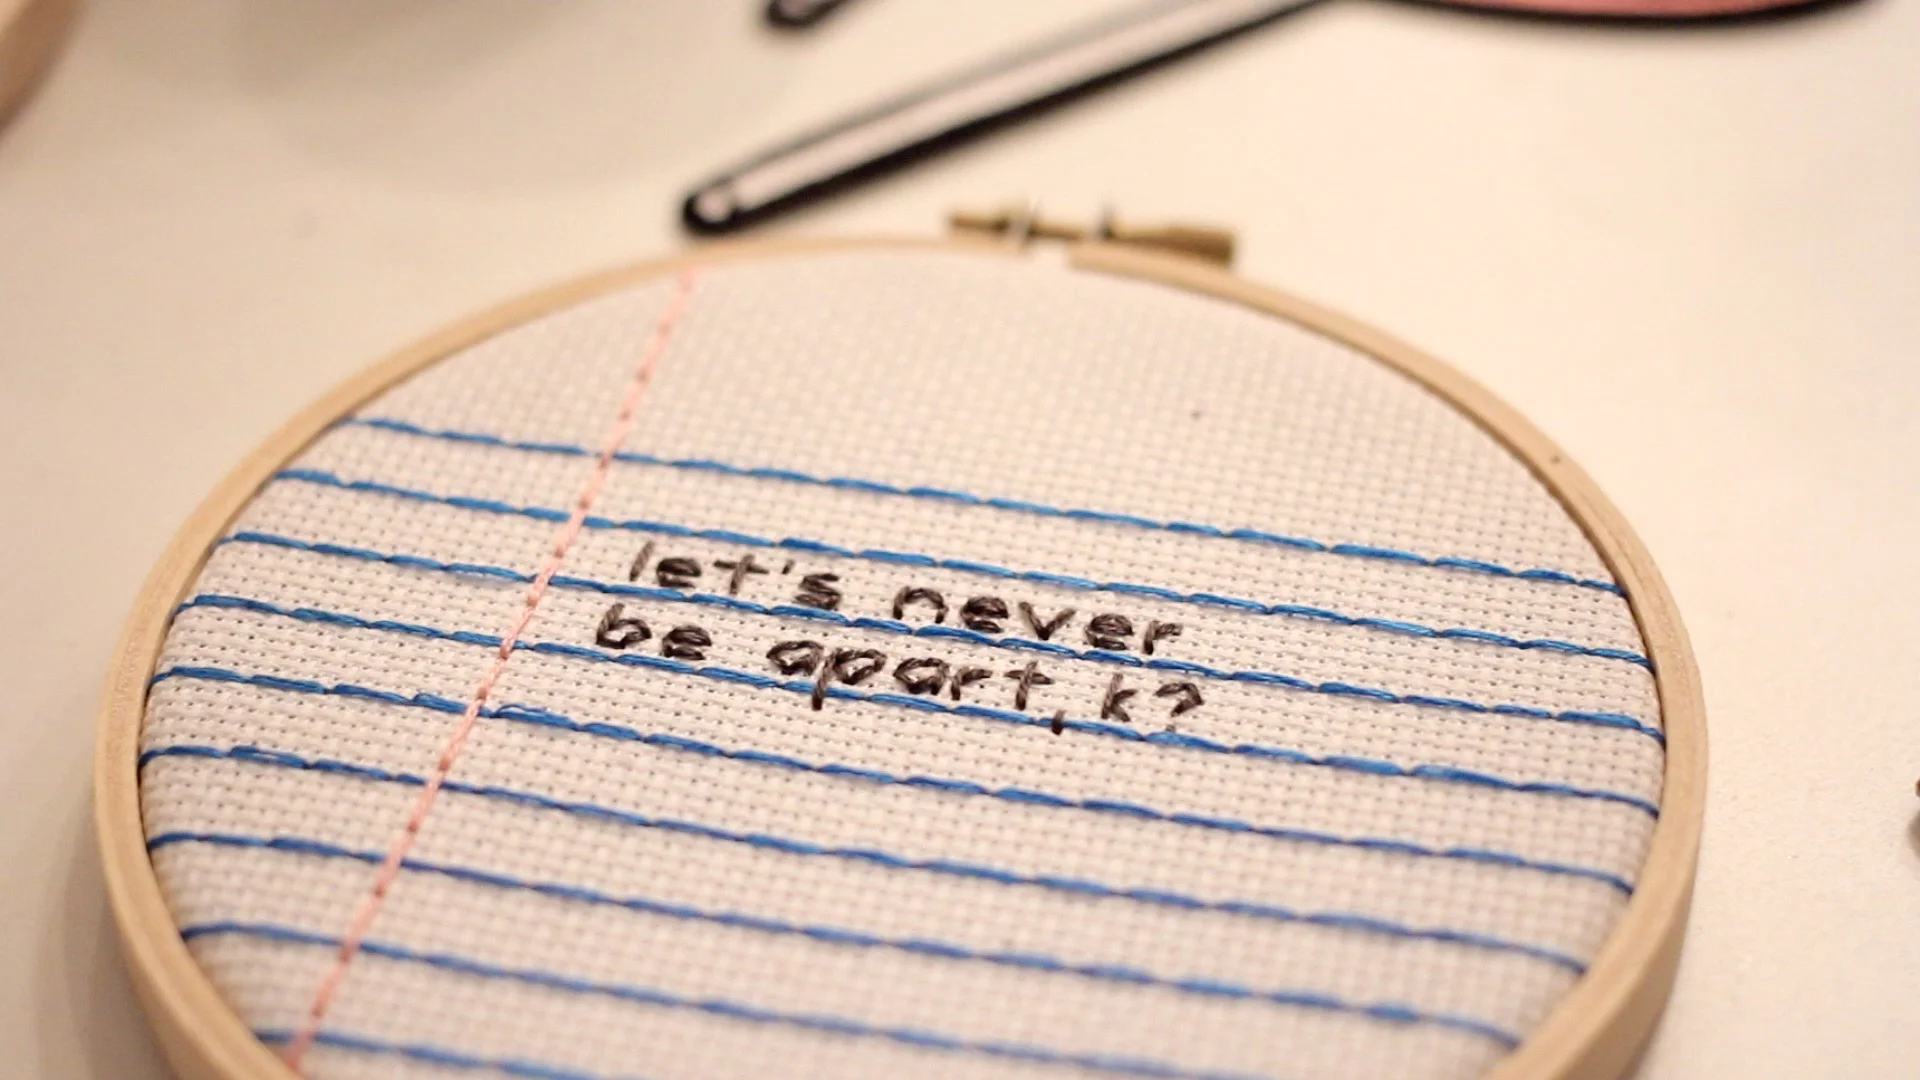 let's never
be apart, k?